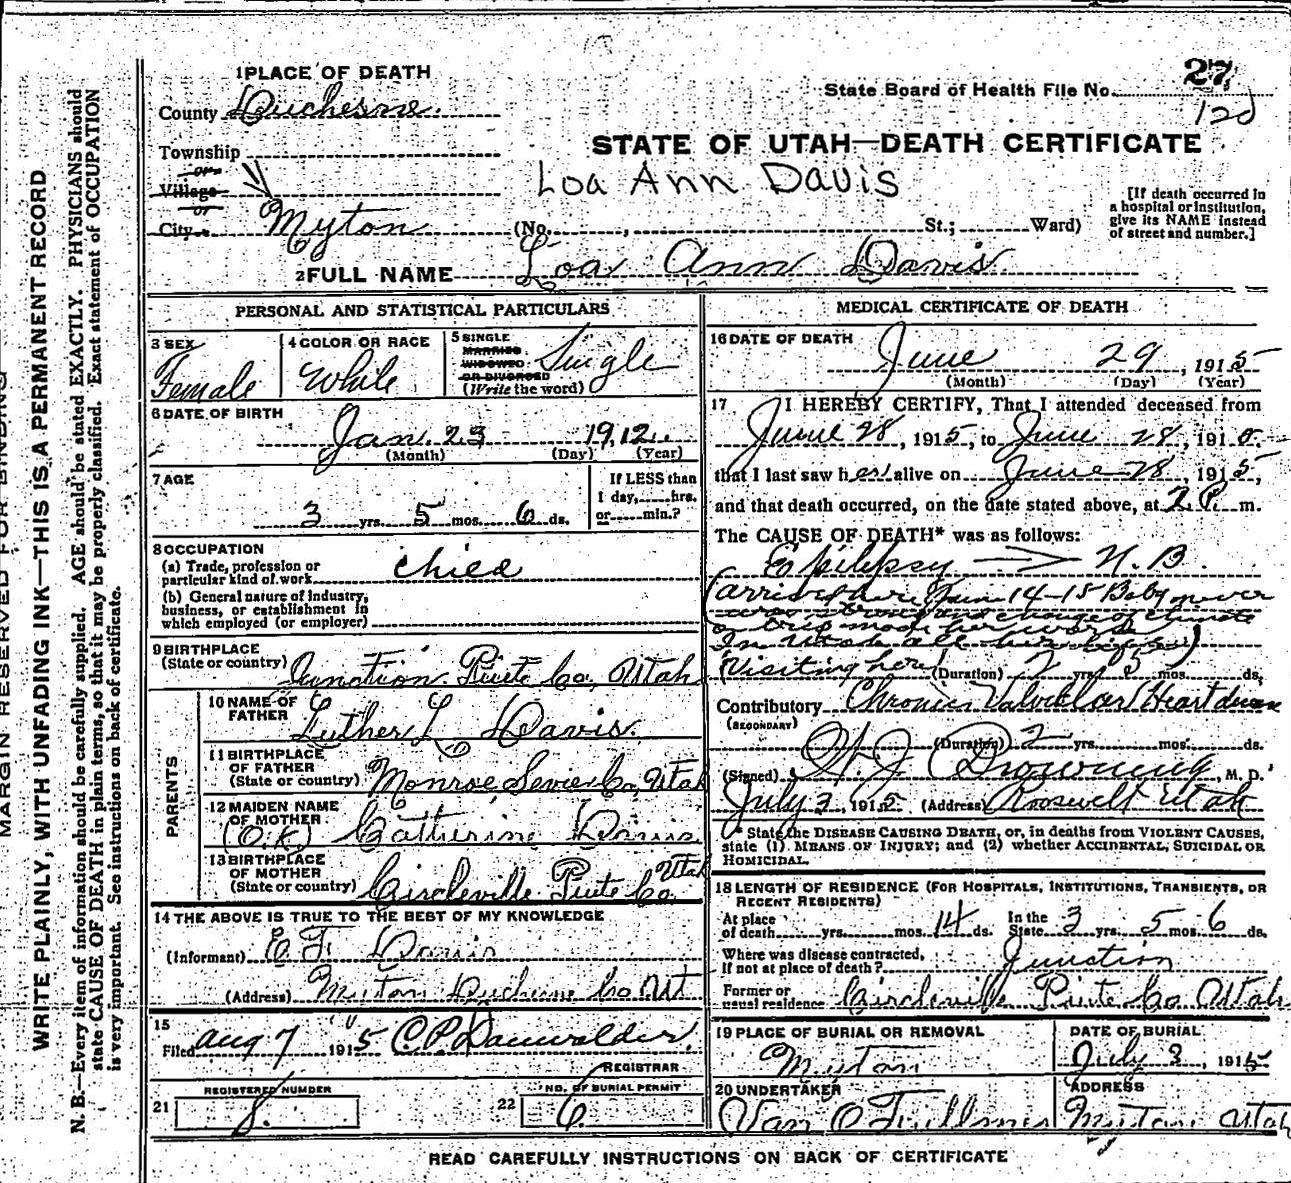 1 PLACE OF DEATH
County Duchesne
Township
or
Village
or
City Myton
State Board of Health File No. 27
120
STATE OF UTAH—DEATH CERTIFICATE
Loa Ann Davis
(No. , St.; Ward)
[If death occurred in
a hospital or institution,
give its NAME instead
of street and number.]
2 FULL NAME Loa Ann Davis
PERSONAL AND STATISTICAL PARTICULARS
3 SEX
Female
4 COLOR OR RACE
White
5 SINGLE
MARRIED
WIDOWED
OR DIVORCED
(Write the word)
Single
6 DATE OF BIRTH
Jan. 23 1912
(Month) (Day) (Year)
7 AGE
3 yrs. 5 mos. 6 ds.
If LESS than
1 day, hrs.
or min.?
8 OCCUPATION
(a) Trade, profession or
particular kind of work child
(b) General nature of Industry,
business, or establishment in
which employed (or employer)
9 BIRTHPLACE
(State or country) Junction Piute Co, Utah
PARENTS
10 NAME OF
FATHER Luther L Davis
11 BIRTHPLACE
OF FATHER
(State or country) Monroe Sevier Co, Utah
12 MAIDEN NAME
OF MOTHER
(O.K.) Catherine Davis
13 BIRTHPLACE
OF MOTHER
(State or country) Circleville Piute Co Utah
14 THE ABOVE IS TRUE TO THE BEST OF MY KNOWLEDGE
(Informant) E F Davis
(Address) Myton Duchesne Co Ut
15
Filed Aug 7 1915 C P Dauwalder
REGISTRAR
REGISTERED NUMBER
21 8
NO. OF BURIAL PERMIT
22 6
MEDICAL CERTIFICATE OF DEATH
16 DATE OF DEATH
June 29, 1915
(Month) (Day) (Year)
17 I HEREBY CERTIFY, That I attended deceased from
June 28, 1915, to June 28, 1915
that I last saw her alive on June 28, 1915,
and that death occurred, on the date stated above, at 2 P. m.
The CAUSE OF DEATH* was as follows:
Epilepsy N.B.
(arrived here June 14-15 Baby never
was strong and change of climate
or trip made her worse
In Utah all her life)
(Visiting here) (Duration) 2 yrs 5 mos. ds.
Contributory Chronic Valvular Heart disease
(SECONDARY)
(Duration) 2 yrs. mos. ds.
(Signed) W. J. Browning, M. D.
July 2, 1915 (Address) Roosevelt Utah
* State the DISEASE CAUSING DEATH, or, in deaths from VIOLENT CAUSES,
state (1) MEANS OF INJURY; and (2) whether ACCIDENTAL, SUICIDAL OR
HOMICIDAL.
18 LENGTH OF RESIDENCE (FOR HOSPITALS, INSTITUTIONS, TRANSIENTS, OR
RECENT RESIDENTS)
At place
of death yrs. mos. 14 ds.
In the
State 3 yrs. 5 mos. 6 ds.
Where was disease contracted,
if not at place of death? Junction
Former or
usual residence Circleville Piute Co Utah
19 PLACE OF BURIAL OR REMOVAL
Myton
DATE OF BURIAL
July 3, 1915
20 UNDERTAKER
Van O Fullmer
ADDRESS
Myton Utah
READ CAREFULLY INSTRUCTIONS ON BACK OF CERTIFICATE
MARGIN RESERVED FOR BINDING
WRITE PLAINLY, WITH UNFADING INK—THIS IS A PERMANENT RECORD
N. B.—Every item of information should be carefully supplied. AGE should be stated EXACTLY. PHYSICIANS should
state CAUSE OF DEATH in plain terms, so that it may be properly classified. Exact statement of OCCUPATION
is very important. See instructions on back of certificate.